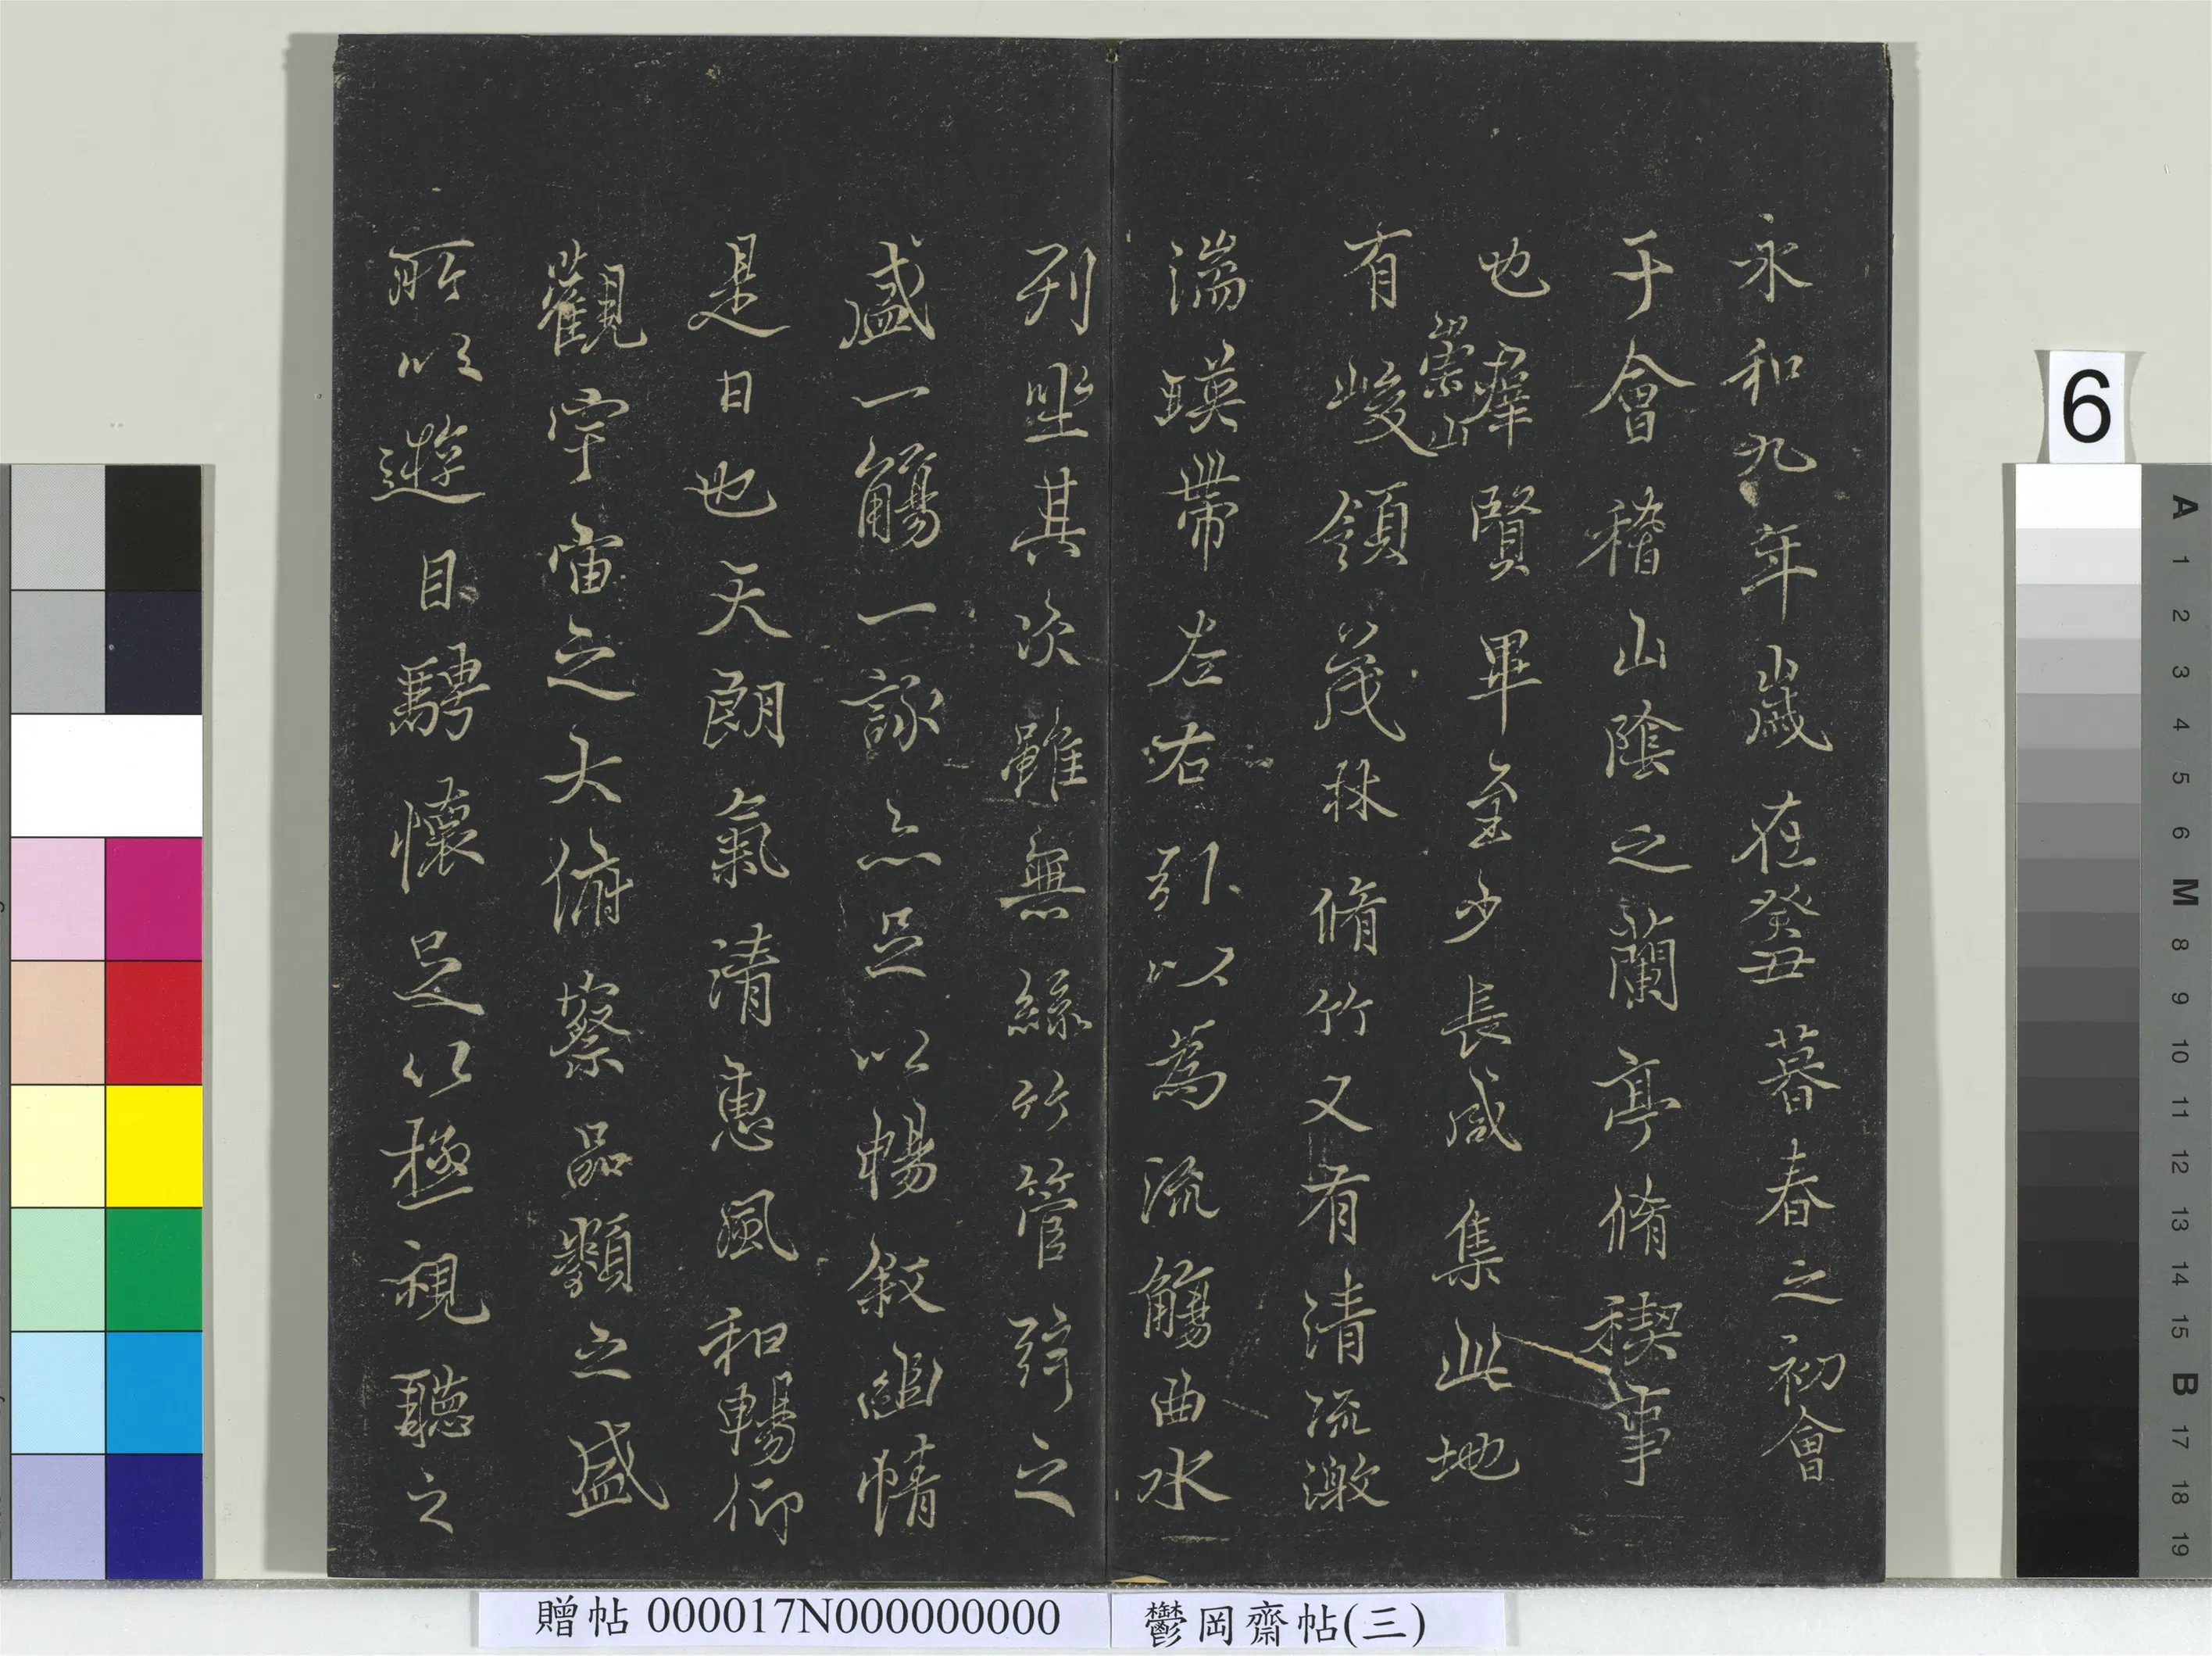 永和九年歲在癸丑暮春之初會
于會稽山陰之蘭亭脩稧事
也羣賢畢至少長咸集此地
有崇山峻領茂林脩竹又有清流激
湍暎帶左右引以為流觴曲水
列坐其次雖無絲竹管弦之
盛一觴一詠亦足以暢敘幽情
是日也天朗氣清惠風和暢仰
觀宇宙之大俯察品類之盛
所以遊目騁懷足以極視聽之
6
A 1 2 3 4 5 6 M 8 9 10 11 12 13 14 15 B 17 18 19
鬱岡齋帖(三)
贈帖 000017N000000000